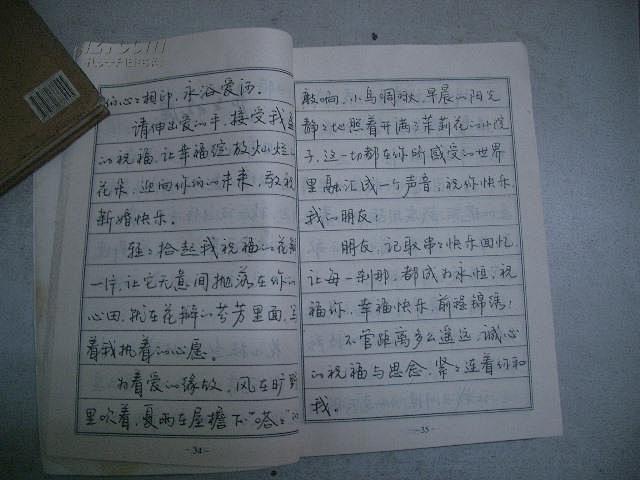 们心心相印,永浴爱河。
请伸出爱的手,接受我
的祝福,让幸福绽放灿烂
花朵,迎向你们的未来,敬祝
新婚快乐。
轻轻拾起我祝福的花瓣
一片,让它无意间抛落在你的
心田,就在花瓣的芬芳里面,
着我执着的心愿。
为着爱的缘故,风在旷野
里吹着,夏雨在屋檐下“嗒嗒”
—34—
敲响,小鸟啁啾,早晨的阳光
静静地照着开满茉莉花的小院
子,这一切都在你所感受的世界
里融汇成一个声音:祝你快乐,
我的朋友!
朋友,记取串串快乐回忆,
让每一刹那,都成为永恒,祝
福你,幸福快乐,前程锦绣!
不管距离多么遥远,诚心
的祝福与思念,紧紧连着你和
我。
—35—